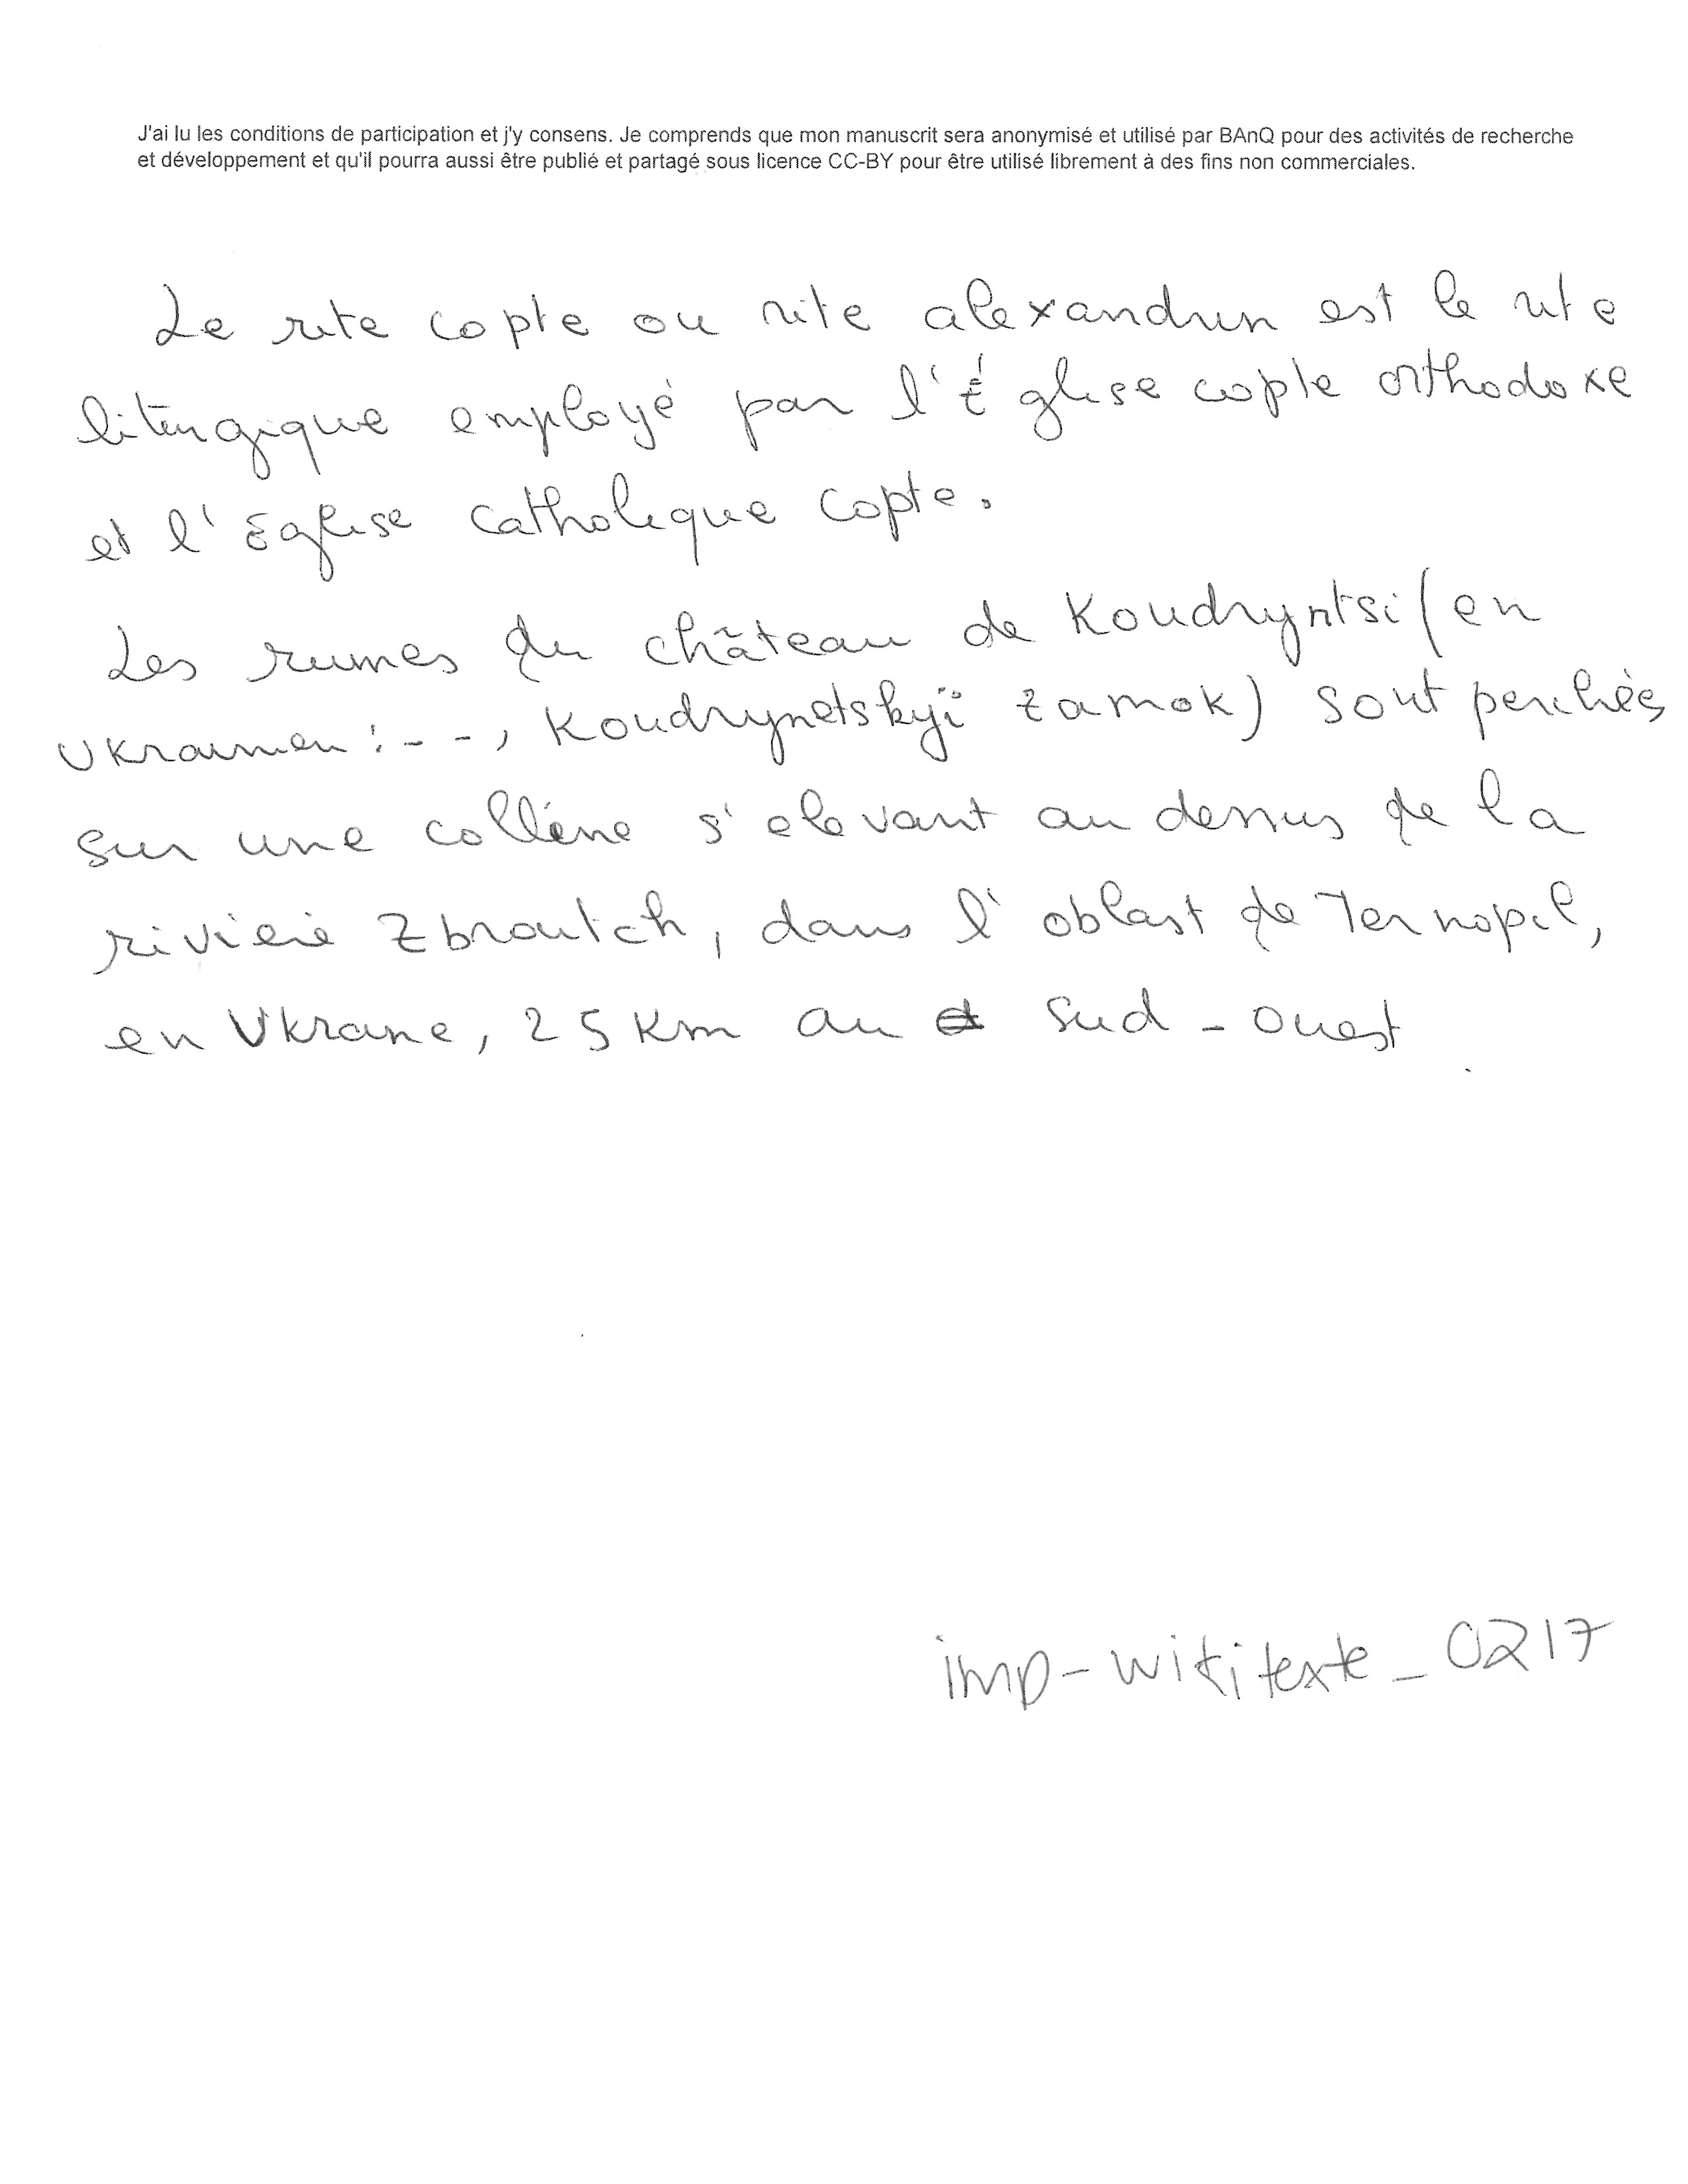 J'ai lu les conditions de participation et j'y consens. Je comprends que mon manuscrit sera anonymisé et utilisé par BAnQ pour des activités de recherche
et développement et qu'il pourra aussi être publié et partagé sous licence CC-BY pour être utilisé librement à des fins non commerciales.
Le rite copte ou rite alexandrin est le rite
liturgique employé par l'Église copte orthodoxe
et l'Eglise catholique copte.
Les ruines du château de Koudryntsi (en
Ukrainien : - - , Koudrynetskyï zamok) sont perchées
sur une colline s'elevant au dessus de la
riviere Zbroutch, dans l'oblast de Ternopil,
en Ukraine, 25 Km au sud - ouest
imp-wikitexte_0217